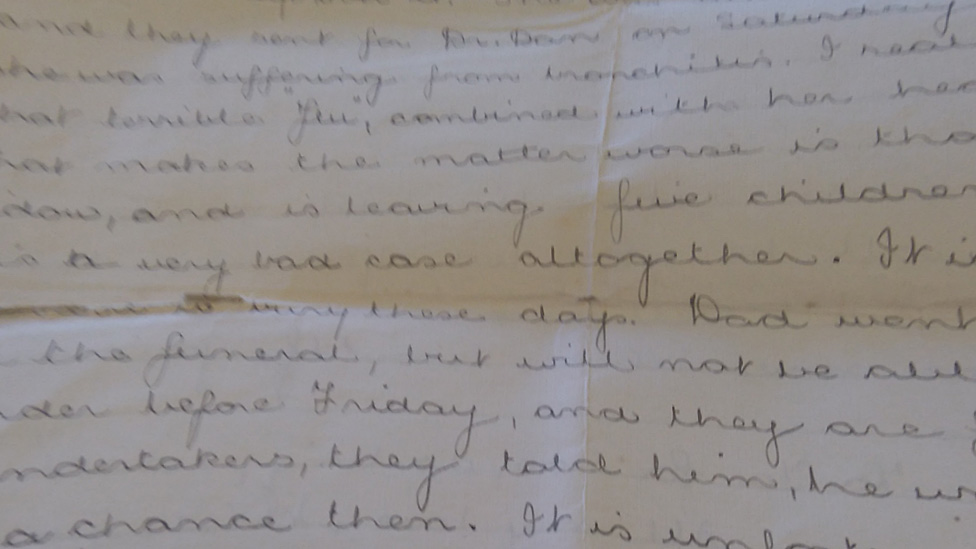 and they sent for Dr. Dan on Saturday
he was suffering from bronchitis. I
hat terrible "Flu", combined with her
hat makes the matter worse is tha
idow, and is leaving five children
is a very bad case altogether. It i
these days. Dad went
the funeral, but will not be abl
der before Friday, and they are
ndertakers, they told him, he
a chance then. It is